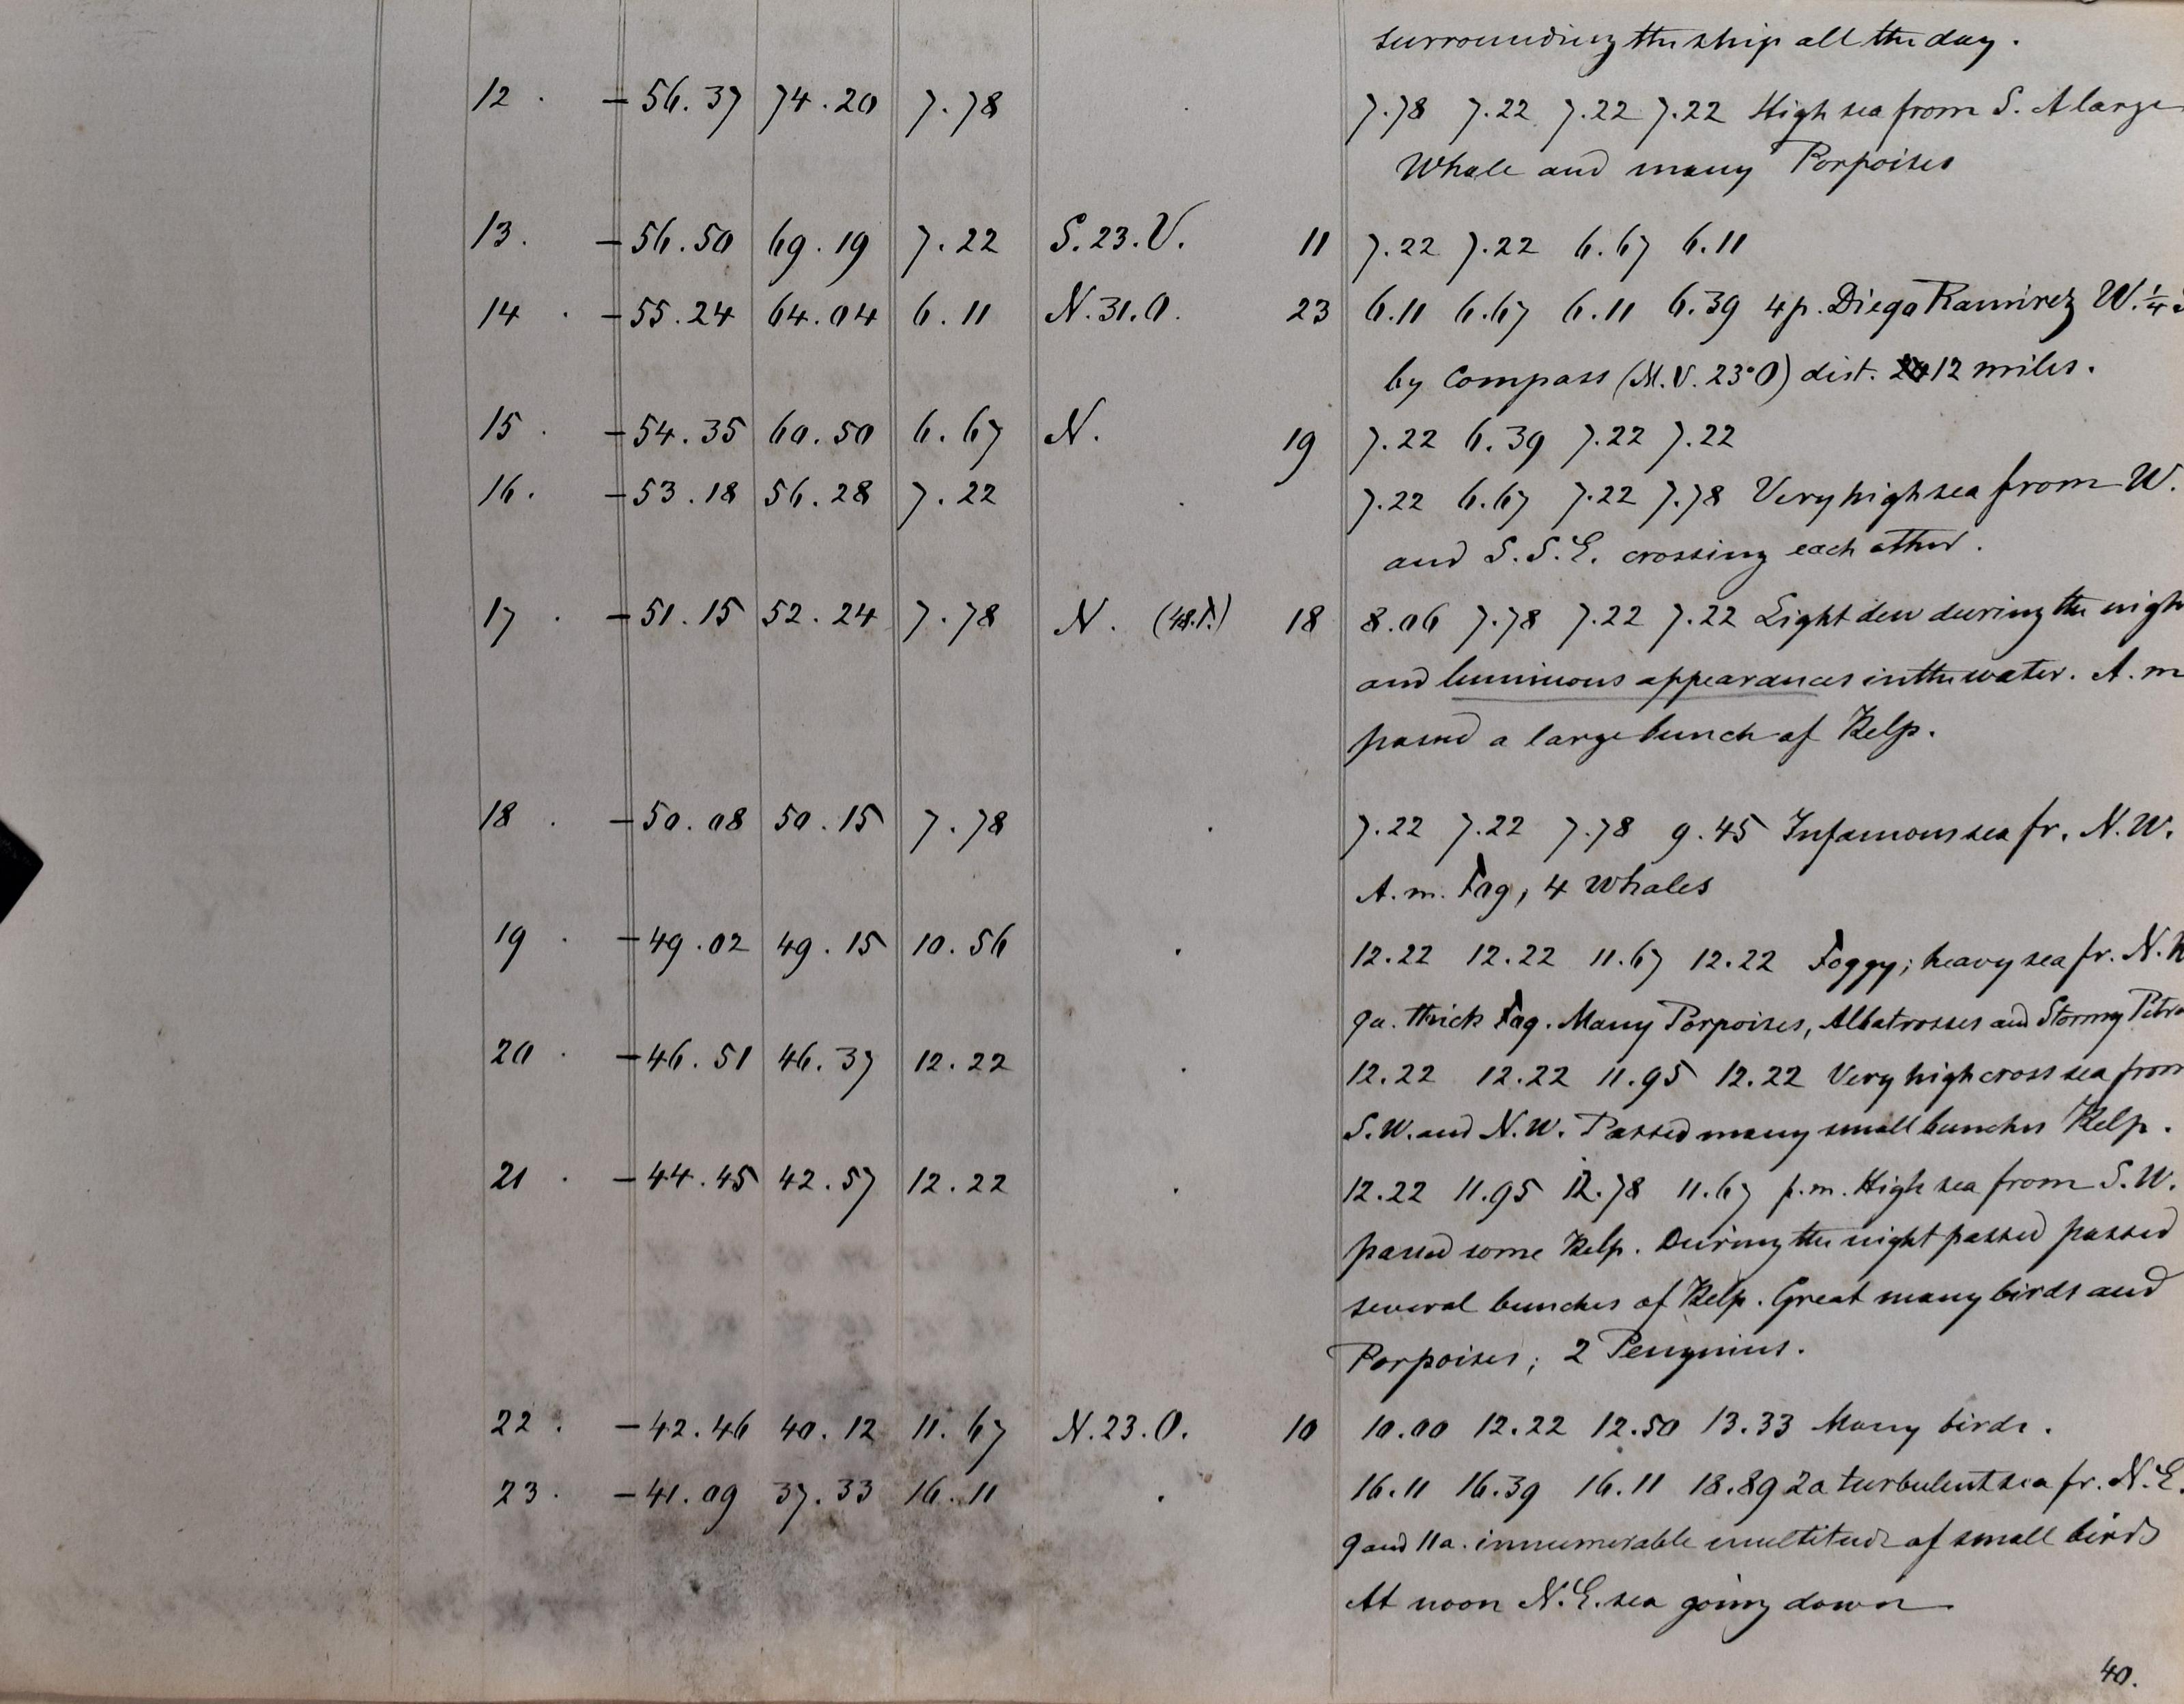 surrounding the ship all the day.
12 . - 56.37 74.20 7.78 . 7.78 7.22 7.22 7.22 High sea from S. A large
Whale and many Porpoises
13. - 56.50 69.19 7.22 S.23.V. 11 7.22 7.22 6.67 6.11
14 . - 55.24 64.04 6.11 N.31.O. 23 6.11 6.67 6.11 6.39 4p. Diego Ramirez W.¼
by Compass (M.V. 23°O) dist. 12 miles.
15 . - 54.35 60.50 6.67 N. 19 7.22 6.39 7.22 7.22
16. - 53.18 56.28 7.22 . 7.22 6.67 7.22 7.78 Very high sea from W.
and S.S.E. crossing each other.
17 . - 51.15 52.24 7.78 N. (48.T.) 18 8.06 7.78 7.22 7.22 Light dew during the nigh
and luminous appearances in the water. A.m
passed a large bunch of Kelp.
18 . - 50.08 50.15 7.78 . 7.22 7.22 7.78 9.45 Infamous sea fr. N.W.
A.m. Fog, 4 Whales
19 . - 49.02 49.15 10.56 . 12.22 12.22 11.67 12.22 Foggy; heavy sea fr. N.
9a. thick Fog. Many Porpoises, Albatrosses and Stormy Petre
20 . - 46.51 46.37 12.22 . 12.22 12.22 11.95 12.22 Very high cross sea from
S.W. and N.W. Passed many small bunches Kelp.
21 . - 44.45 42.57 12.22 . 12.22 11.95 12.78 11.67 p.m. High sea from S.W.
passed some Kelp. During the night passed passed
several bunches of Kelp. Great many birds and
Porpoises; 2 Penguins.
22 . - 42.46 40.12 11.67 N.23.O. 10 10.00 12.22 12.50 13.33 Many birds.
23. - 41.09 37.33 16.11 . 16.11 16.39 16.11 18.89 2a turbulent sea fr. N.E.
9 and 11a. innumerable multitude of small birds
At noon N.E. sea going down
40.